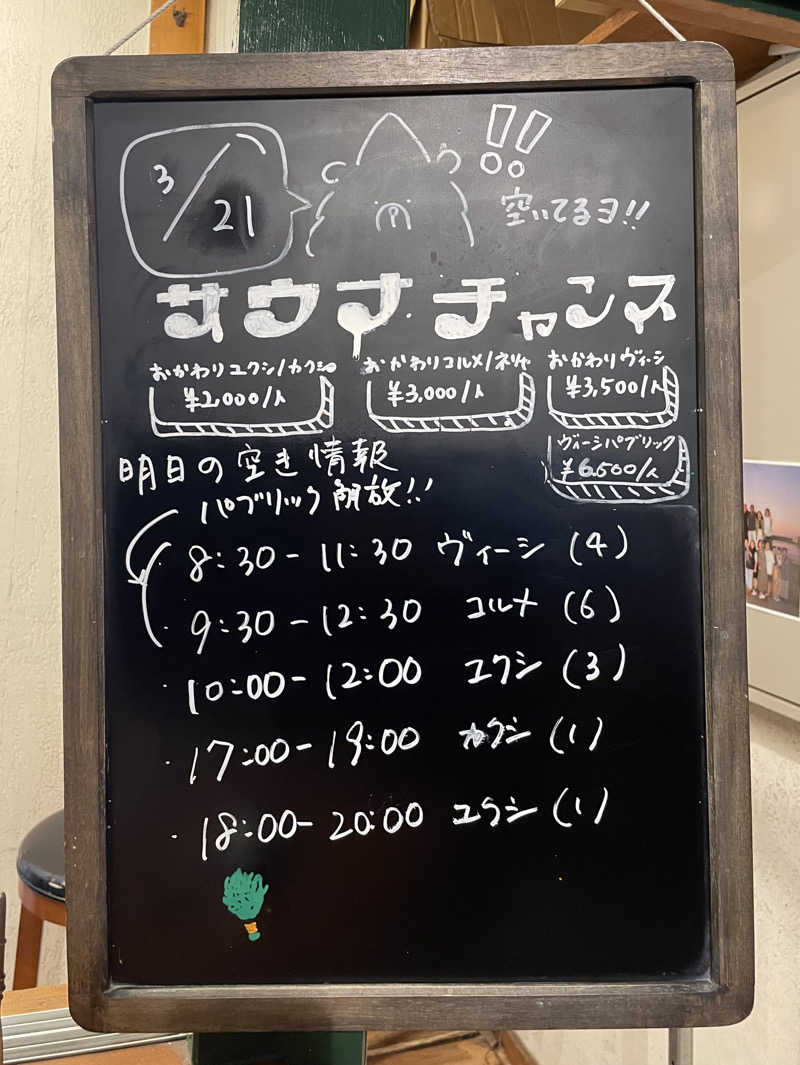 3/21
!!
空いてるヨ!!
サウナチャンス
おかわりユクシ/カクシ
¥2,000/人
おかわりコルメ/ネリャ
¥3,000/人
おかわりヴィーシ
¥3,500/人
ヴィーシパブリック
¥6,500/人
明日の空き情報
パブリック開放!!
8:30-11:30 ヴィーシ (4)
・9:30-12:30 コルメ (6)
・10:00-12:00 ユクシ (3)
・17:00-19:00 カクシ (1)
・18:00-20:00 ユクシ (1)